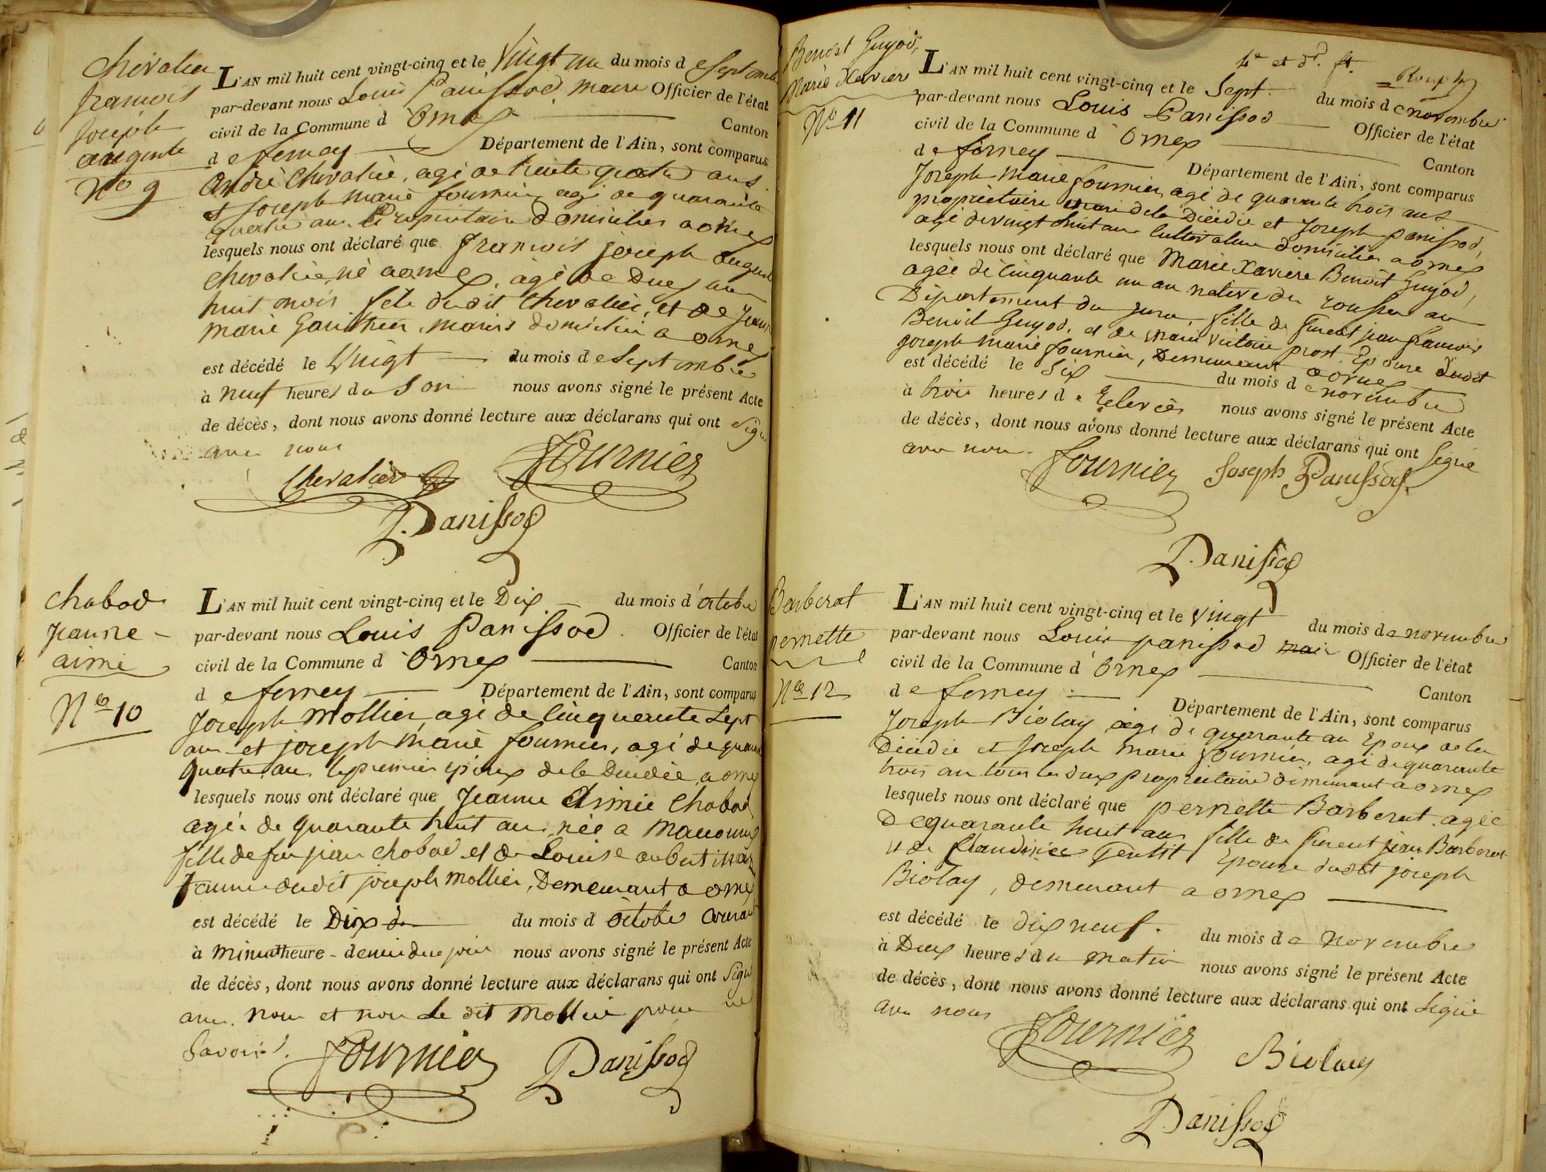 Chevalier
françois
joseph
auguste
N° 9
L'AN mil huit cent vingt-cinq et le Vingt un du mois d e Septembre
par-devant nous Louis Panissod maire Officier de l'état
civil de la Commune d' Ornex Canton
d e ferney Département de l'Ain, sont comparus
André Chevalier, agé de trente quatre ans
et Joseph marie fournier agé de quarante
quatre ans Propriétaire domiciliés a ornex
lesquels nous ont déclaré que françois joseph auguste
Chevalier né a ornex, agé de Deux ans
huit mois fils dudit Chevalier, et de Jeanne
marie Gauthier, mariés domiciliés a ornex
est décédé le Vingt du mois d e Septembre
à neuf heures du Soir nous avons signé le présent Acte
de décès, dont nous avons donné lecture aux déclarans qui ont Signé
avec nous
Chevalier Fournier
Panissod
chabod
Jeanne
aimé
N° 10
L'AN mil huit cent vingt-cinq et le Dix du mois d'octobre
par-devant nous Louis Panissod Officier de l'état
civil de la Commune d' Ornex Canton
d e ferney Département de l'Ain, sont comparus
Joseph Mollier agé de Cinquante Sept
ans et joseph marie fournier, agé de quarante
quatre ans le premier époux de la Décédée, a ornex
lesquels nous ont déclaré que Jeanne Aimée Chabod
agée de quarante huit ans, née a
fille de feu jean chabod et de Louise
femme dudit joseph Mollier, Demeurant a ornex
est décédé le Dix du mois d' octobre courant
à minuit heure - demi du jour nous avons signé le présent Acte
de décès, dont nous avons donné lecture aux déclarans qui ont Signé
avec nous et non Le dit Mollier pour ne
Savoir.
Fournier Panissod
Benoit Guyod,
Marie Xavière
N° 11
L'AN mil huit cent vingt-cinq et le Sept du mois d e novembre
par-devant nous Louis Panissod Officier de l'état
civil de la Commune d' Ornex Canton
d e ferney Département de l'Ain, sont comparus
Joseph Marie fournier, agé de quarante trois ans
propriétaire mari de la Décédée et Joseph panissod,
agé de vingt huit ans Cultivateur domiciliés a ornex
lesquels nous ont déclaré que Marie Xavière Benoit Guyod,
agée de Cinquante un an native du au
Département du jura, fille de feu jean françois
Benoit Guyod, et de marie Victoire prost Epouse dudit
joseph marie fournier, Demeurant a ornex
est décédé le Six du mois d e novembre
à trois heures d e Relevée nous avons signé le présent Acte
de décès, dont nous avons donné lecture aux déclarans qui ont Signé
avec nous.
Fournier Joseph Panissod.
Panissod
Barberat
pernette
N° 12
L'AN mil huit cent vingt-cinq et le Vingt du mois d e novembre
par-devant nous Louis panissod maire Officier de l'état
civil de la Commune d' Ornex Canton
d e ferney Département de l'Ain, sont comparus
Joseph Biolay agé de quarante an Epoux de la
Décédée et Joseph marie fournier, agé de quarante
trois an tous les deux propriétaire demeurant a ornex
lesquels nous ont déclaré que pernette Barberat agée
De quarante huit ans fille de feu jean Barberat
et de Claudine Gentit Epouse dudit joseph
Biolay, demeurant a ornex
est décédé le dix neuf. du mois d e novembre
à Deux heures du matin nous avons signé le présent Acte
de décès, dont nous avons donné lecture aux déclarans qui ont Signé
avec nous
Fournier Biolay
Panissod